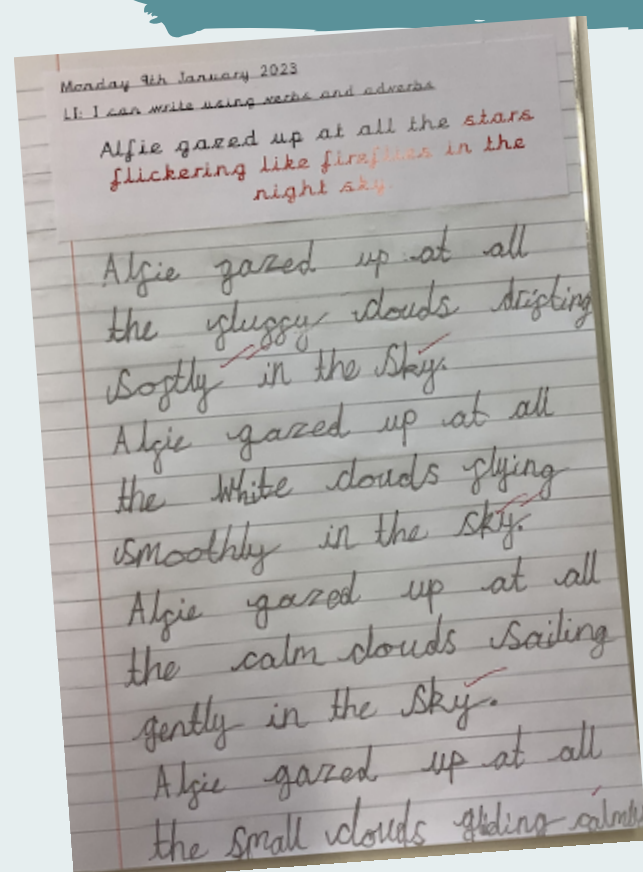 Monday 9th January 2023
LI: I can write using verbs and adverbs
Alfie gazed up at all the stars
flickering like fireflies in the
night sky.
Alfie gazed up at all
the fluffy clouds drifting
softly in the sky.
Alfie gazed up at all
the white clouds flying
smoothly in the sky.
Alfie gazed up at all
the calm clouds sailing
gently in the sky.
Alfie gazed up at all
the small clouds gliding calmly